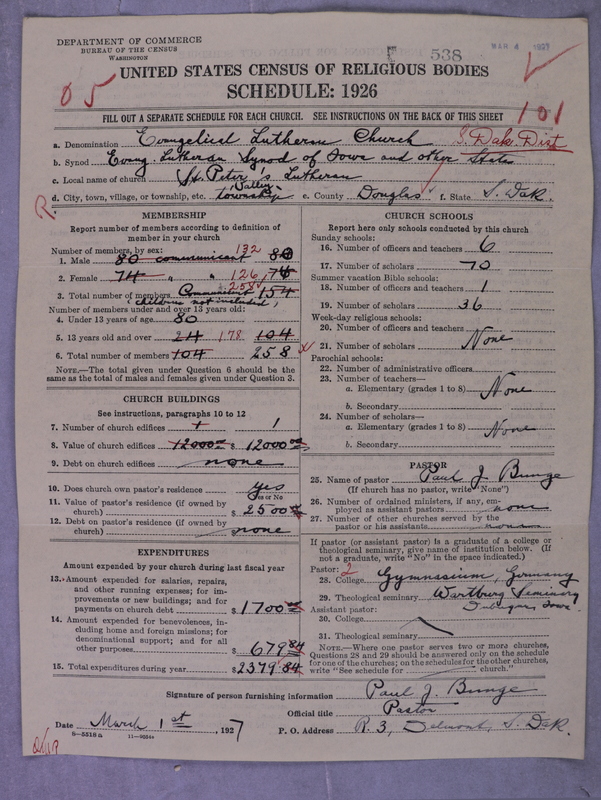 DEPARTMENT OF COMMERCE
BUREAU OF THE CENSUS
WASHINGTON
538
MAR 4 1927
UNITED STATES CENSUS OF RELIGIOUS BODIES
SCHEDULE: 1926
05
FILL OUT A SEPARATE SCHEDULE FOR EACH CHURCH. SEE INSTRUCTIONS ON THE BACK OF THIS SHEET
101
a. Denomination Evangelical Lutheran Church S. Dak. Dist
b. Synod Evang. Lutheran Synod of Iowa and other States
c. Local name of church St. Peter's Lutheran
d. City, town, village, or township, etc. Valley township e. County Douglas f. State S. Dak.
R
MEMBERSHIP
Report number of members according to definition of
member in your church
Number of members, by sex:
1. Male 80 communicant 132 80
2. Female 74 " " 126 74
3. Total number of members Communicant 258 154
children not included,
Number of members under and over 13 years old:
4. Under 13 years of age 80
5. 13 years old and over 24 178 104
6. Total number of members 104 258
NOTE.—The total given under Question 6 should be the
same as the total of males and females given under Question 3.
CHURCH BUILDINGS
See instructions, paragraphs 10 to 12
7. Number of church edifices 1 1
8. Value of church edifices 12000 $ 12000 00
9. Debt on church edifices none
10. Does church own pastor's residence yes
Yes or No
11. Value of pastor's residence (if owned by
church) $ 2500
12. Debt on pastor's residence (if owned by
church) none
EXPENDITURES
Amount expended by your church during last fiscal year
13. Amount expended for salaries, repairs,
and other running expenses; for im-
provements or new buildings; and for
payments on church debt $ 1700 00
14. Amount expended for benevolences, in-
cluding home and foreign missions; for
denominational support; and for all
other purposes $ 679 84
15. Total expenditures during year $ 2379 84
CHURCH SCHOOLS
Report here only schools conducted by this church
Sunday schools:
16. Number of officers and teachers 6
17. Number of scholars 70
Summer vacation Bible schools:
18. Number of officers and teachers 1
19. Number of scholars 36
Week-day religious schools:
20. Number of officers and teachers
21. Number of scholars None
Parochial schools:
22. Number of administrative officers
23. Number of teachers—
a. Elementary (grades 1 to 8) None
b. Secondary
24. Number of scholars—
a. Elementary (grades 1 to 8) None
b. Secondary
PASTOR
25. Name of pastor Paul J. Bunge
(If church has no pastor, write "None")
26. Number of ordained ministers, if any, em-
ployed as assistant pastors none
27. Number of other churches served by the
pastor or his assistants none
If pastor (or assistant pastor) is a graduate of a college or
theological seminary, give name of institution below. (If
not a graduate, write "No" in the space indicated.)
Pastor: 2
28. College Gymnasium, Germany
29. Theological seminary Wartburg Seminary
Dubuque, Iowa.
Assistant pastor:
30. College
31. Theological seminary
NOTE.—Where one pastor serves two or more churches,
Questions 28 and 29 should be answered only on the schedule
for one of the churches; on the schedules for the other churches,
write "See schedule for church."
Signature of person furnishing information Paul J. Bunge
Official title Pastor
Date March 1st, 1927 P. O. Address R. 3, Delmont, S. Dak.
8—5518a 11—9054